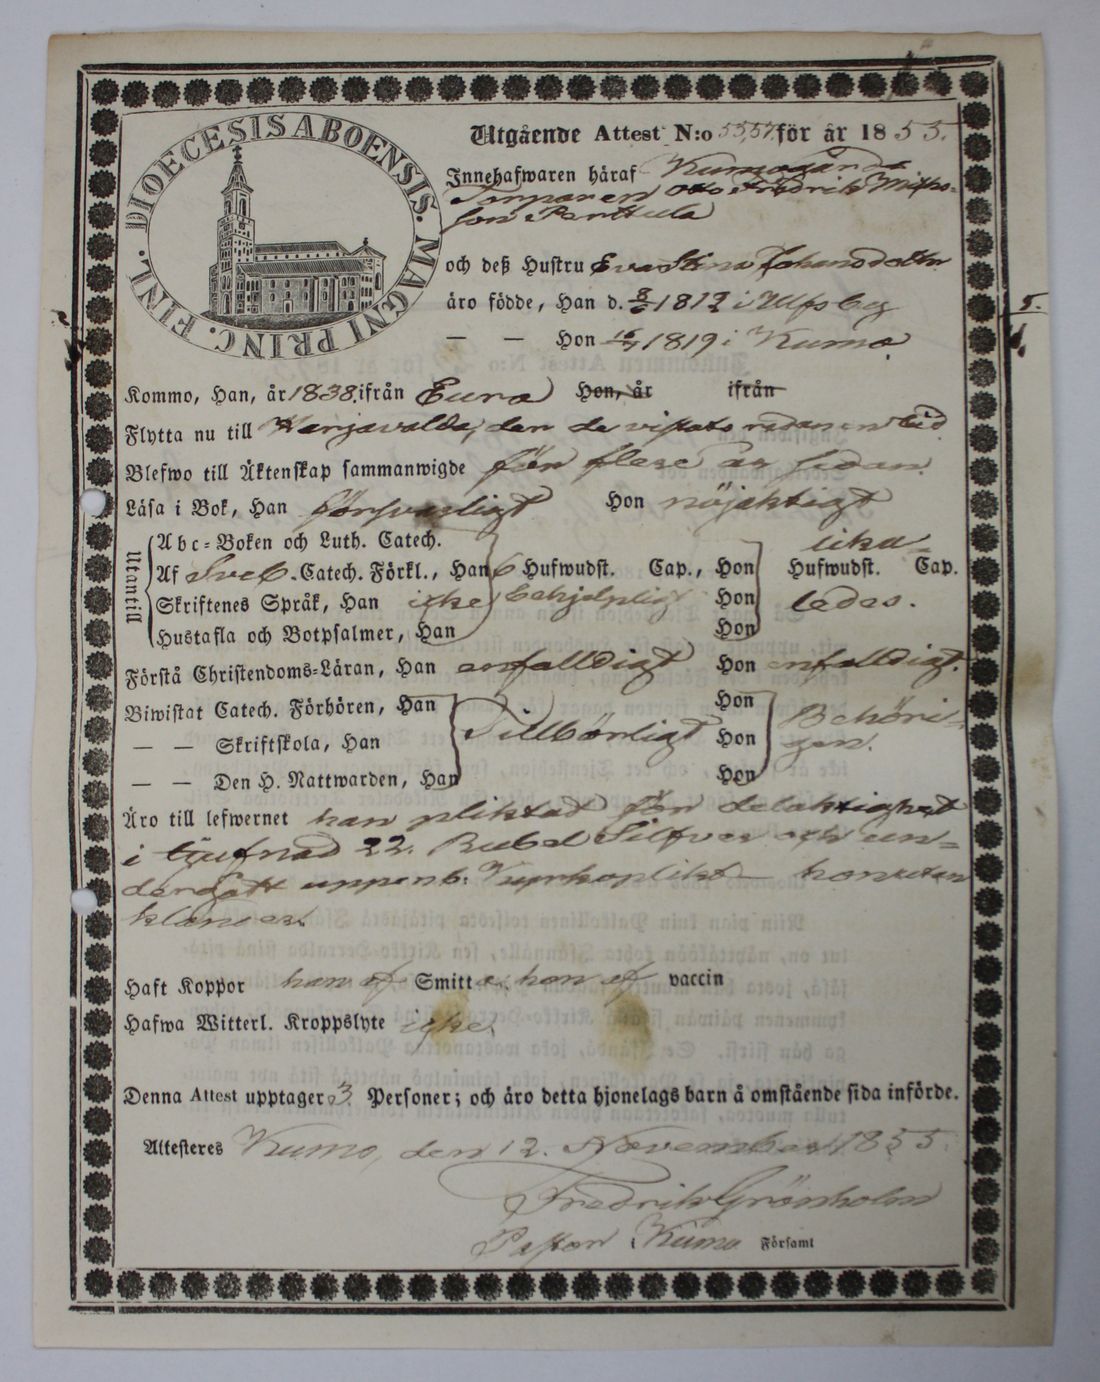 DIOECESIS ABOENSIS. MAGNI PRINC. FINL.
Utgående Attest N:o 55,57. för år 1855.
Innehafwaren håraf Kumogårds
Torparen Otto Fredrik Mitts-
son Perttula
och deß Hustru Eva Stina Johansdotter
äro födde, Han d. 8/3 1812 i Ulfsby
— — Hon 16/7 1819 i Kumo
Kommo, Han, år 1838 ifrån Eura Hon, år ifrån
Flytta nu till Harjavalda, der de vistats redan en tid
Blefwo till Äktenskap sammanwigde för flere år sedan.
Läsa i Bok, Han försvarligt Hon nöjaktigt
Utantill
Abc-Boken och Luth. Catech.
Af Sveb. Catech. Förkl., Han 6 Hufwudst. Cap., Hon lika- Hufwudst. Cap.
Skriftenes Språk, Han icke behjelpligt Hon ledes.
Hustafla och Botpsalmer, Han Hon
Förstå Christendoms-Läran, Han enfaldigt Hon enfaldigt.
Biwistat Catech. Förhören, Han Hon
— — Skriftskola, Han Tillbörligt Hon Behöri-
gen.
— — Den H. Nattwarden, Han Hon
Äro till lefwernet han pliktad för delaktighet
i tjufnad 22. Rubel Silfver och un-
dergått uppenb. Kyrkoplikt — hon utan
klander.
Haft Koppor han af Smitt e, hon af vaccin
Hafwa Witterl. Kroppslyte icke.
Denna Attest upptager 3 Personer; och äro detta hjonelags barn å omstående sida införde.
Attesteres Kumo, den 12. November 1855.
Fredrik Grönholm
Pastor i Kumo Församl